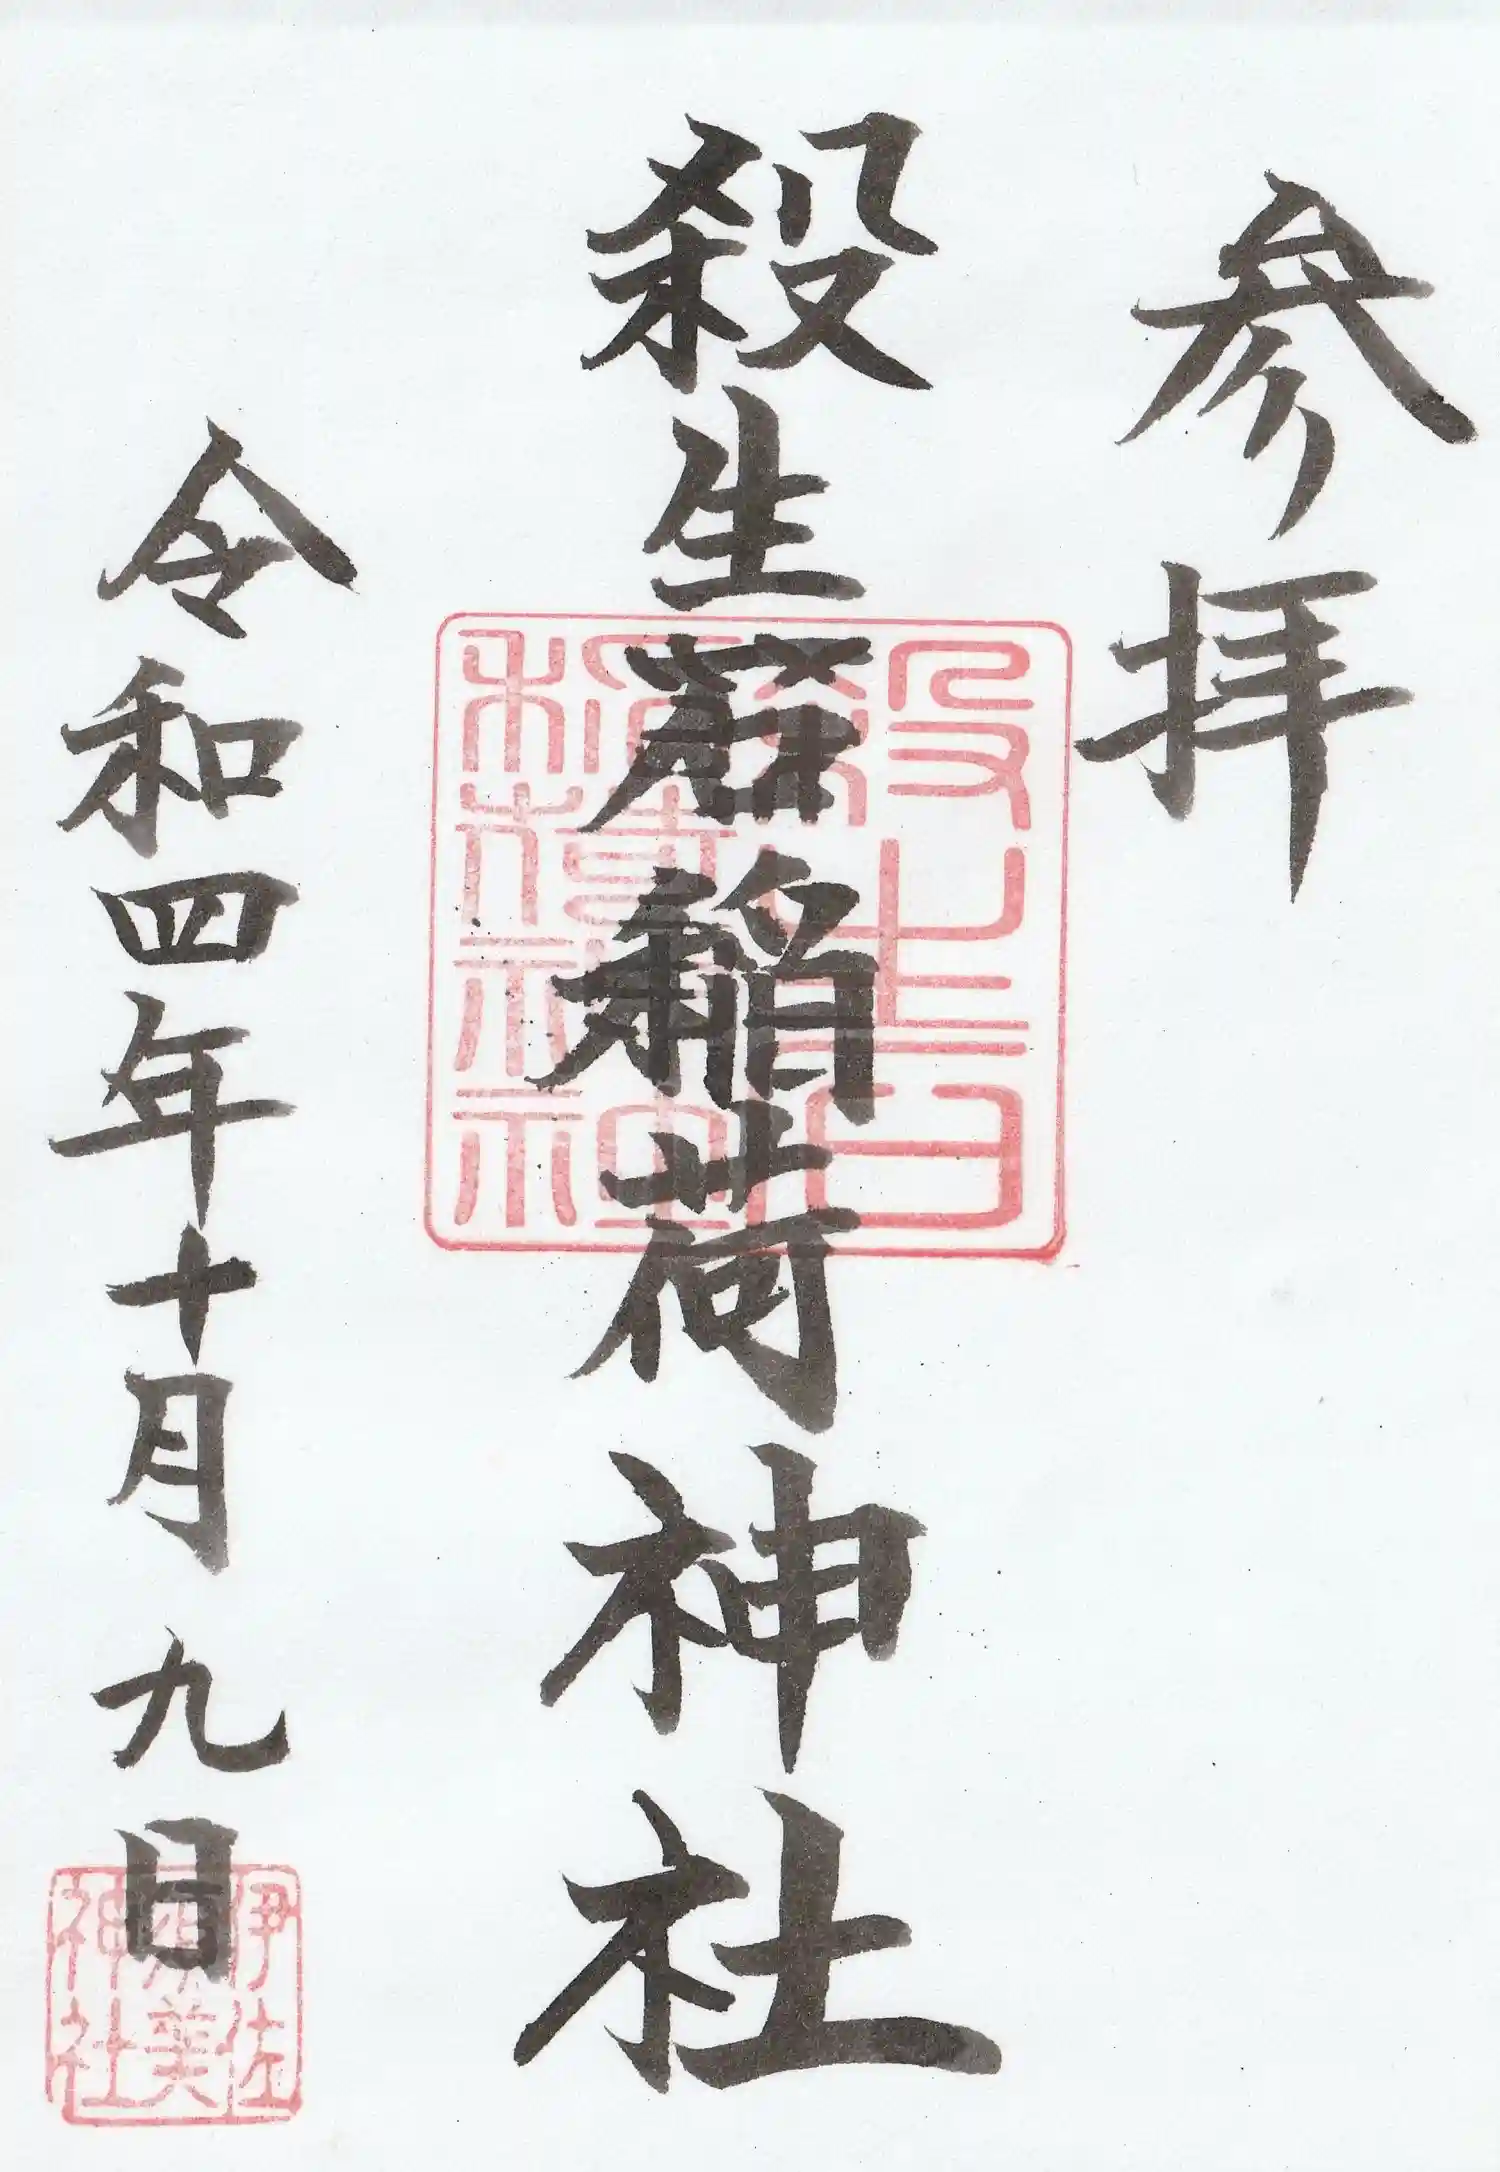 参拝
殺生石稲荷神社
殺生石
稲荷神社
令和四年十月九日
伊佐
須美
神社